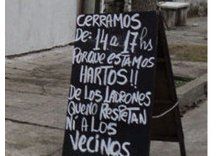 CERRAMOS
DE: 14 a 17hs
PORQUE ESTAMOS
HARTOS!!
DE LOS LADRONES
QUE NO RESPETAN
NI A LOS
VECINOS